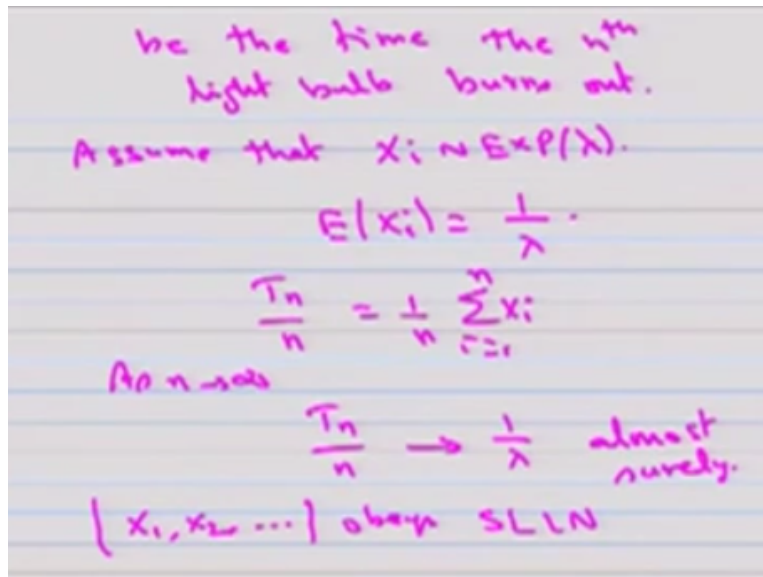 be the time the nth
light bulb burns out.
Assume that Xi ~ Exp(λ).
E(Xi) = 1/λ.
Tn/n = 1/n Σ_{i=1}^{n} Xi
As n→∞
Tn/n → 1/λ almost
surely.
{X1, X2, ...} obeys SLLN